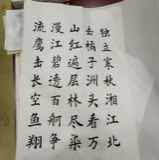 独立寒秋湘江北
去橘子洲头看万
山红遍层林尽染
漫江碧透百舸争
流鹰击长空鱼翔